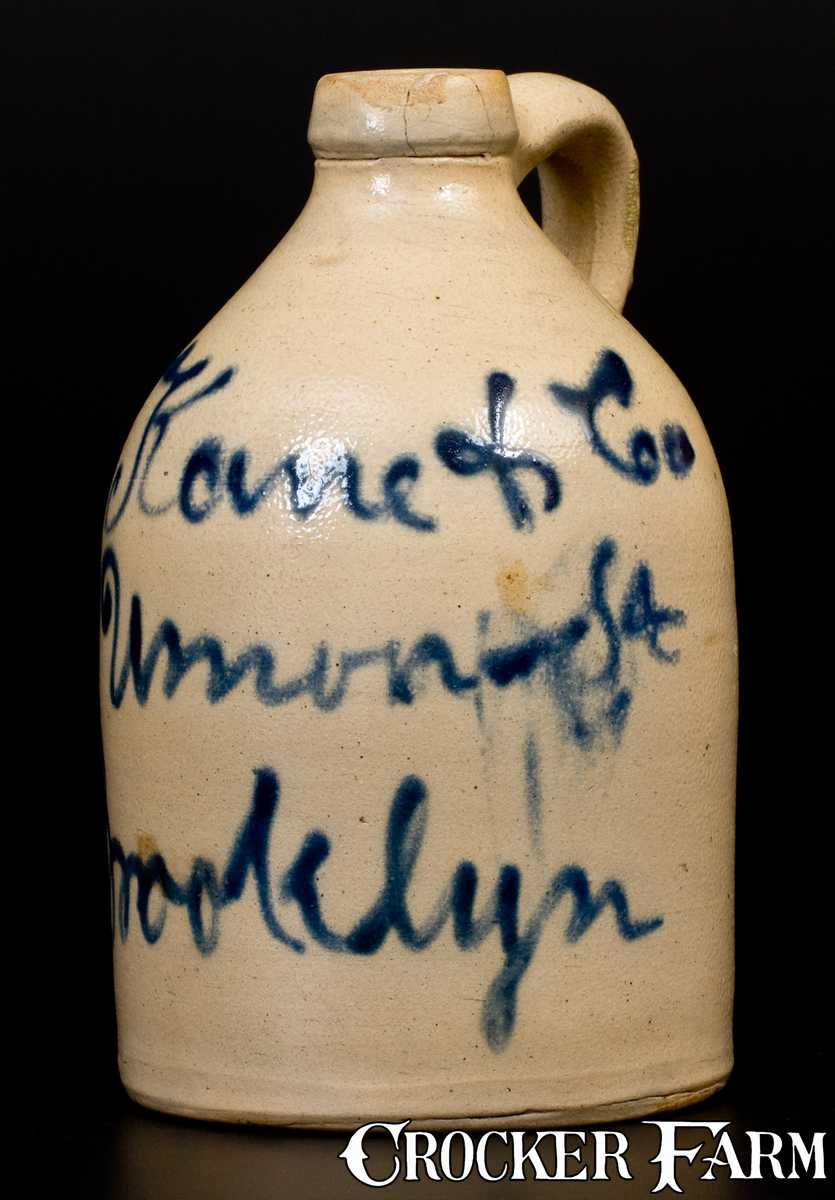 Kane & Co
Union St
Brooklyn
CROCKER FARM